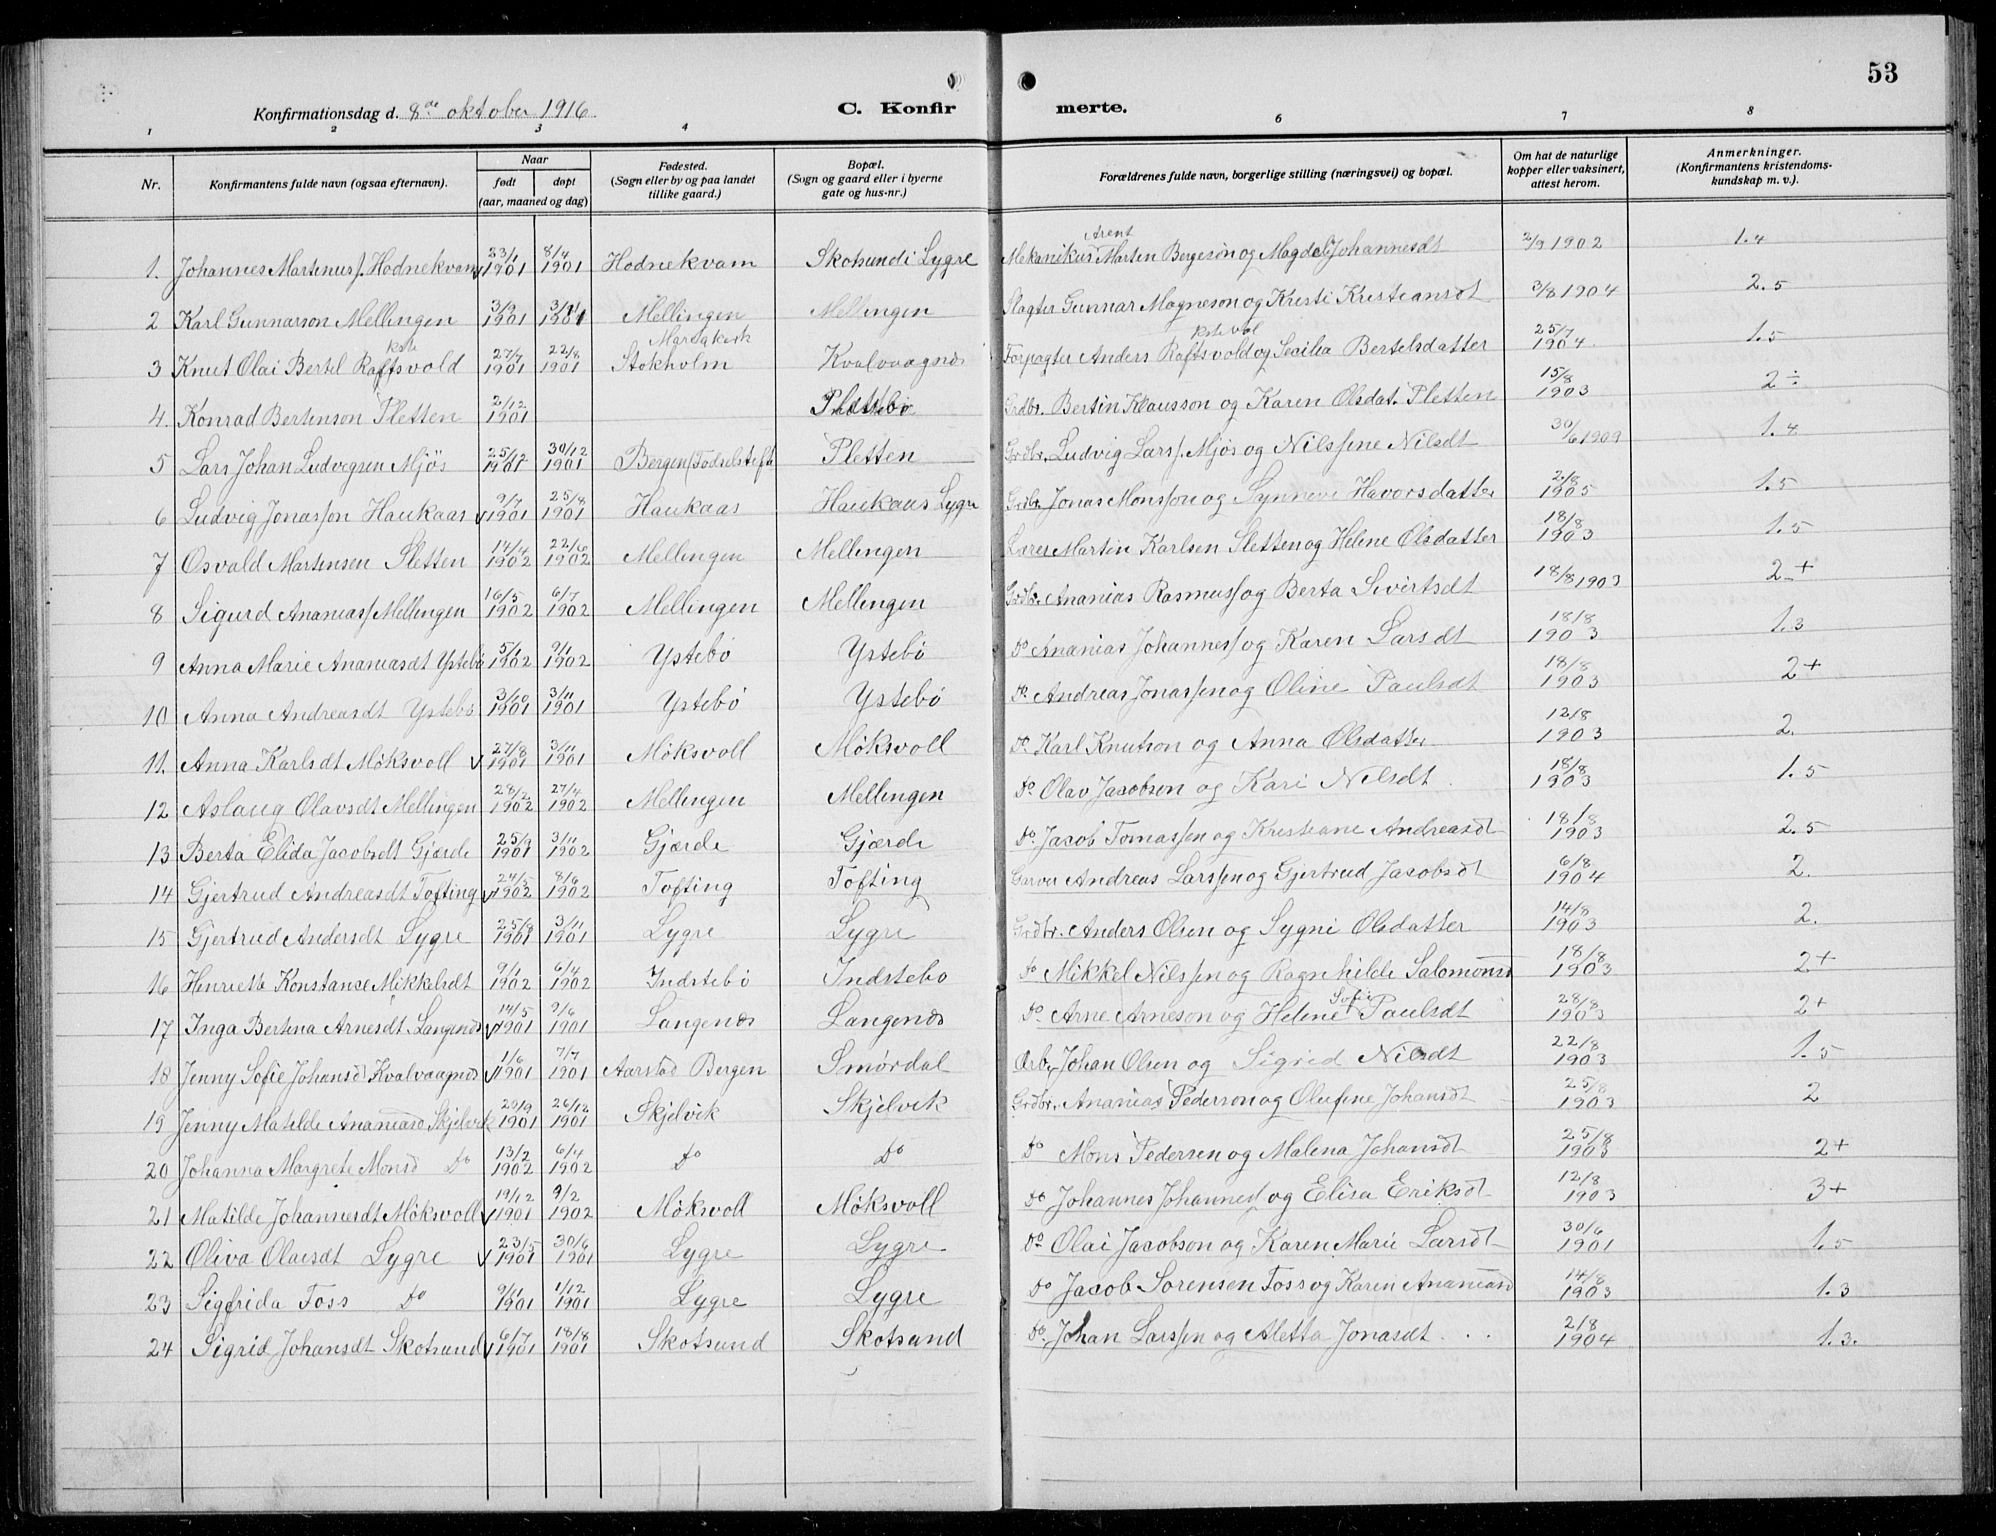 53
Konfirmationsdag d. 8de oktober 1916.
C. Konfirmerte.
1 2 3 4 6 7 8
Nr. | Konfirmantens fulde navn (ogsaa efternavn). | Naar født | døpt (aar, maaned og dag) | Fødested. (Sogn eller by og paa landet tillike gaard.) | Bopæl. (Sogn og gaard eller i byerne gate og hus-nr.) | Forældrenes fulde navn, borgerlige stilling (næringsvei) og bopæl. | Om hat de naturlige kopper eller vaksinert, attest herom. | Anmerkninger. (Konfirmantens kristendoms-kundskap m. v.).
1. Johannes Martinuss. Hodnekvam 23/1 1901 8/4 1901 Hodnekvam Skotsund i Lygre Mekanikus Arent Marten Bergesøn og Magdel Johannesdt 2/9 1902 1.4
2 Karl Gunnarson Mellingen 3/9 1901 3/11 1901 Mellingen Mellingen Slagter Gunnar Magneson og Kristi Kristiansdt 3/8 1904 2.5
3 Knut Olai Bertil Raftsvold 27/7 1901 22/8 1901 Stokholm Kvalvaagnes Forpagter Anders Raftsvold og Secilia Bertelsdatter 25/7 1904 1.5
4. Konrad Bertinson Sletten 2/12 1901 Grdbr. Bertin Klausson og Karen Olsdat. Sletten 15/8 1903 2÷
5 Lars Johan Ludvigsen Mjøs 25/12 1901 30/12 1901 Bergen Fødselstift Sletten Grdbr. Ludvig Larss. Mjøs og Nilssine Nilsdt 30/6 1909 1.4
6 Ludvig Jonasson Haukaas 9/7 1901 25/8 1901 Haukaas Haukaas Lygre Grdbr. Jonas Monsson og Synneve Havorsdatter 2/8 1905 1.5
7 Osvald Martinsen Sletten 14/4 1902 22/6 1902 Mellingen Mellingen Lærer Martin Karlsen Sletten og Helene Olsdatter 18/8 1903 1.5
8 Sigurd Ananiass Mellingen 16/5 1902 6/7 1902 Mellingen Mellingen Grdbr. Ananias Rasmuss og Berta Sivertsdt 18/8 1903 2+
9 Anna Marie Ananiasdt Ystebø 5/1 1902 9/1 1902 Ystebø Ystebø Do Ananias Johanness og Karen Larsdt 18/8 1903 1.3
10 Anna Andreasdt Ystebø 3/10 1901 3/11 1901 Ystebø Ystebø Do. Andreas Jonassen og Oline Paulsdt 18/8 1903 2+
11. Anna Karlsdt Møksvoll 27/8 1901 3/11 1901 Møksvoll Møksvoll Do. Karl Knutson og Anna Olsdatter 12/8 1903 2.
12 Aslaug Olavsdt Mellingen 28/2 1902 27/4 1902 Mellingen Mellingen Do. Olav Jacobson og Kari Nilsdt. 18/8 1903 1.5
13 Berta Elida Jacobsdt Gjærde 25/9 1901 3/11 1902 Gjærde Gjærde Do. Jacob Tomassen og Kristiane Andreasdt 18/8 1903 2.5
14 Gjertrud Andreasdt Tofting 24/5 1902 8/6 1902 Tofting Tofting Garver Andreas Larssen og Gjertrud Jacobsdt 6/8 1904 2.
15 Gjertrud Andersdt Lygre 25/8 1901 3/11 1901 Lygre Lygre Grdbr. Anders Olsen og Sygni Olsdatter 14/8 1903 2.
16 Henriette Konstance Mikkelsdt 9/1 1902 6/4 1902 Indstebø Indstebø Do Mikkel Nilssen og Ragnhilde Salomonsd 18/8 1903 2+
17 Inga Bertina Arnesdt Langenæs 14/5 1901 9/6 1901 Langenæs Langenæs Do. Arne Arneson og Helene Sofie Paulsdt 28/8 1903 2+
18 Jenny Sofie Johansdt Kvalvaagnæs 1/6 1901 7/7 1901 Aarstad Bergen Smørdal Arb. Johan Olsen og Sigrid Nilsdt 22/8 1903 1.5
19 Jenny Matilde Ananiasd Skjelvik 20/9 1901 26/12 1901 Skjelvik Skjelvik Grdbr. Ananias Pederson og Olufine Johansdt 25/8 1903 2
20 Johanna Margrete Monsd Do 13/2 1902 6/4 1902 Do Do Do Mons Pedersen og Malena Johansdt 25/8 1903 2+
21 Matilde Johannesdt Møksvoll 19/12 1901 9/2 1902 Møksvoll Møksvoll Do Johannes Johanness og Elisa Eriksdt 12/8 1903 3+
22 Oliva Olaisdt Lygre 23/5 1901 30/6 1901 Lygre Lygre Do Olai Jacobson og Karen Marie Larsdt 30/6 1901 1.5
23 Sigfrida Foss Do 9/11 1901 1/12 1901 Lygre Lygre Do Jacob Sørensen Foss og Karen Ananiasd 14/8 1903 1.3
24 Sigrid Johansdt Skotsund 6/7 1901 18/8 1901 Skotsund Skotsund Do. Johan Larssen og Aletta Jonasdt... 2/8 1904 1.3.